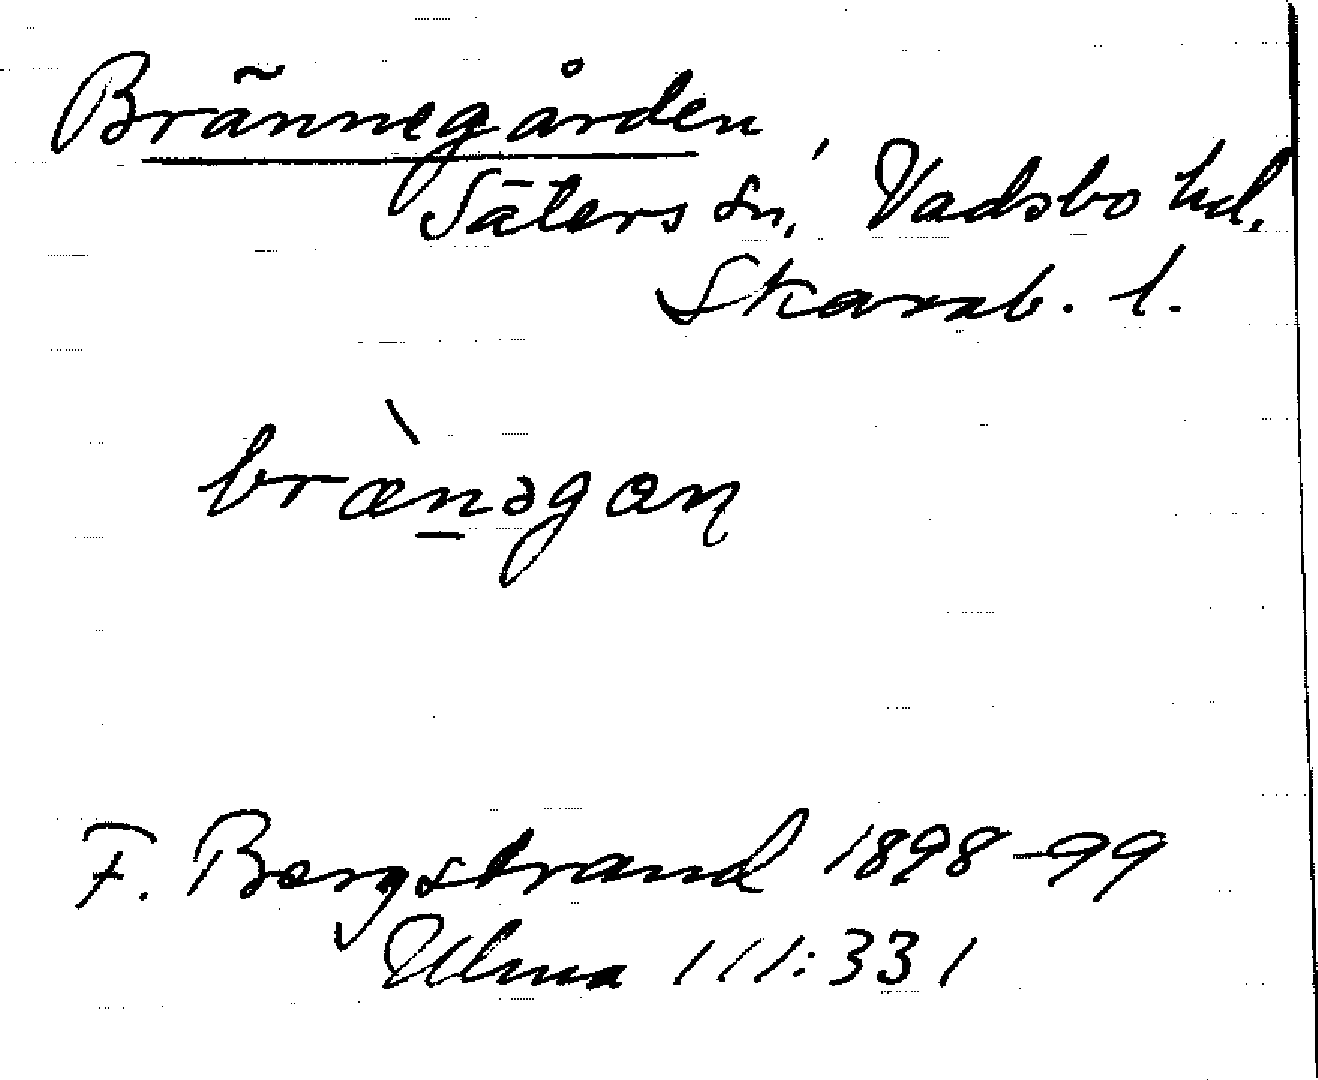 Brännegården,
Säters sn, Vadsbo hd.
Skarab. l.
bræ̀n̲əgaɳ
F. Bergstrand 1898-99
Ulma 111:331